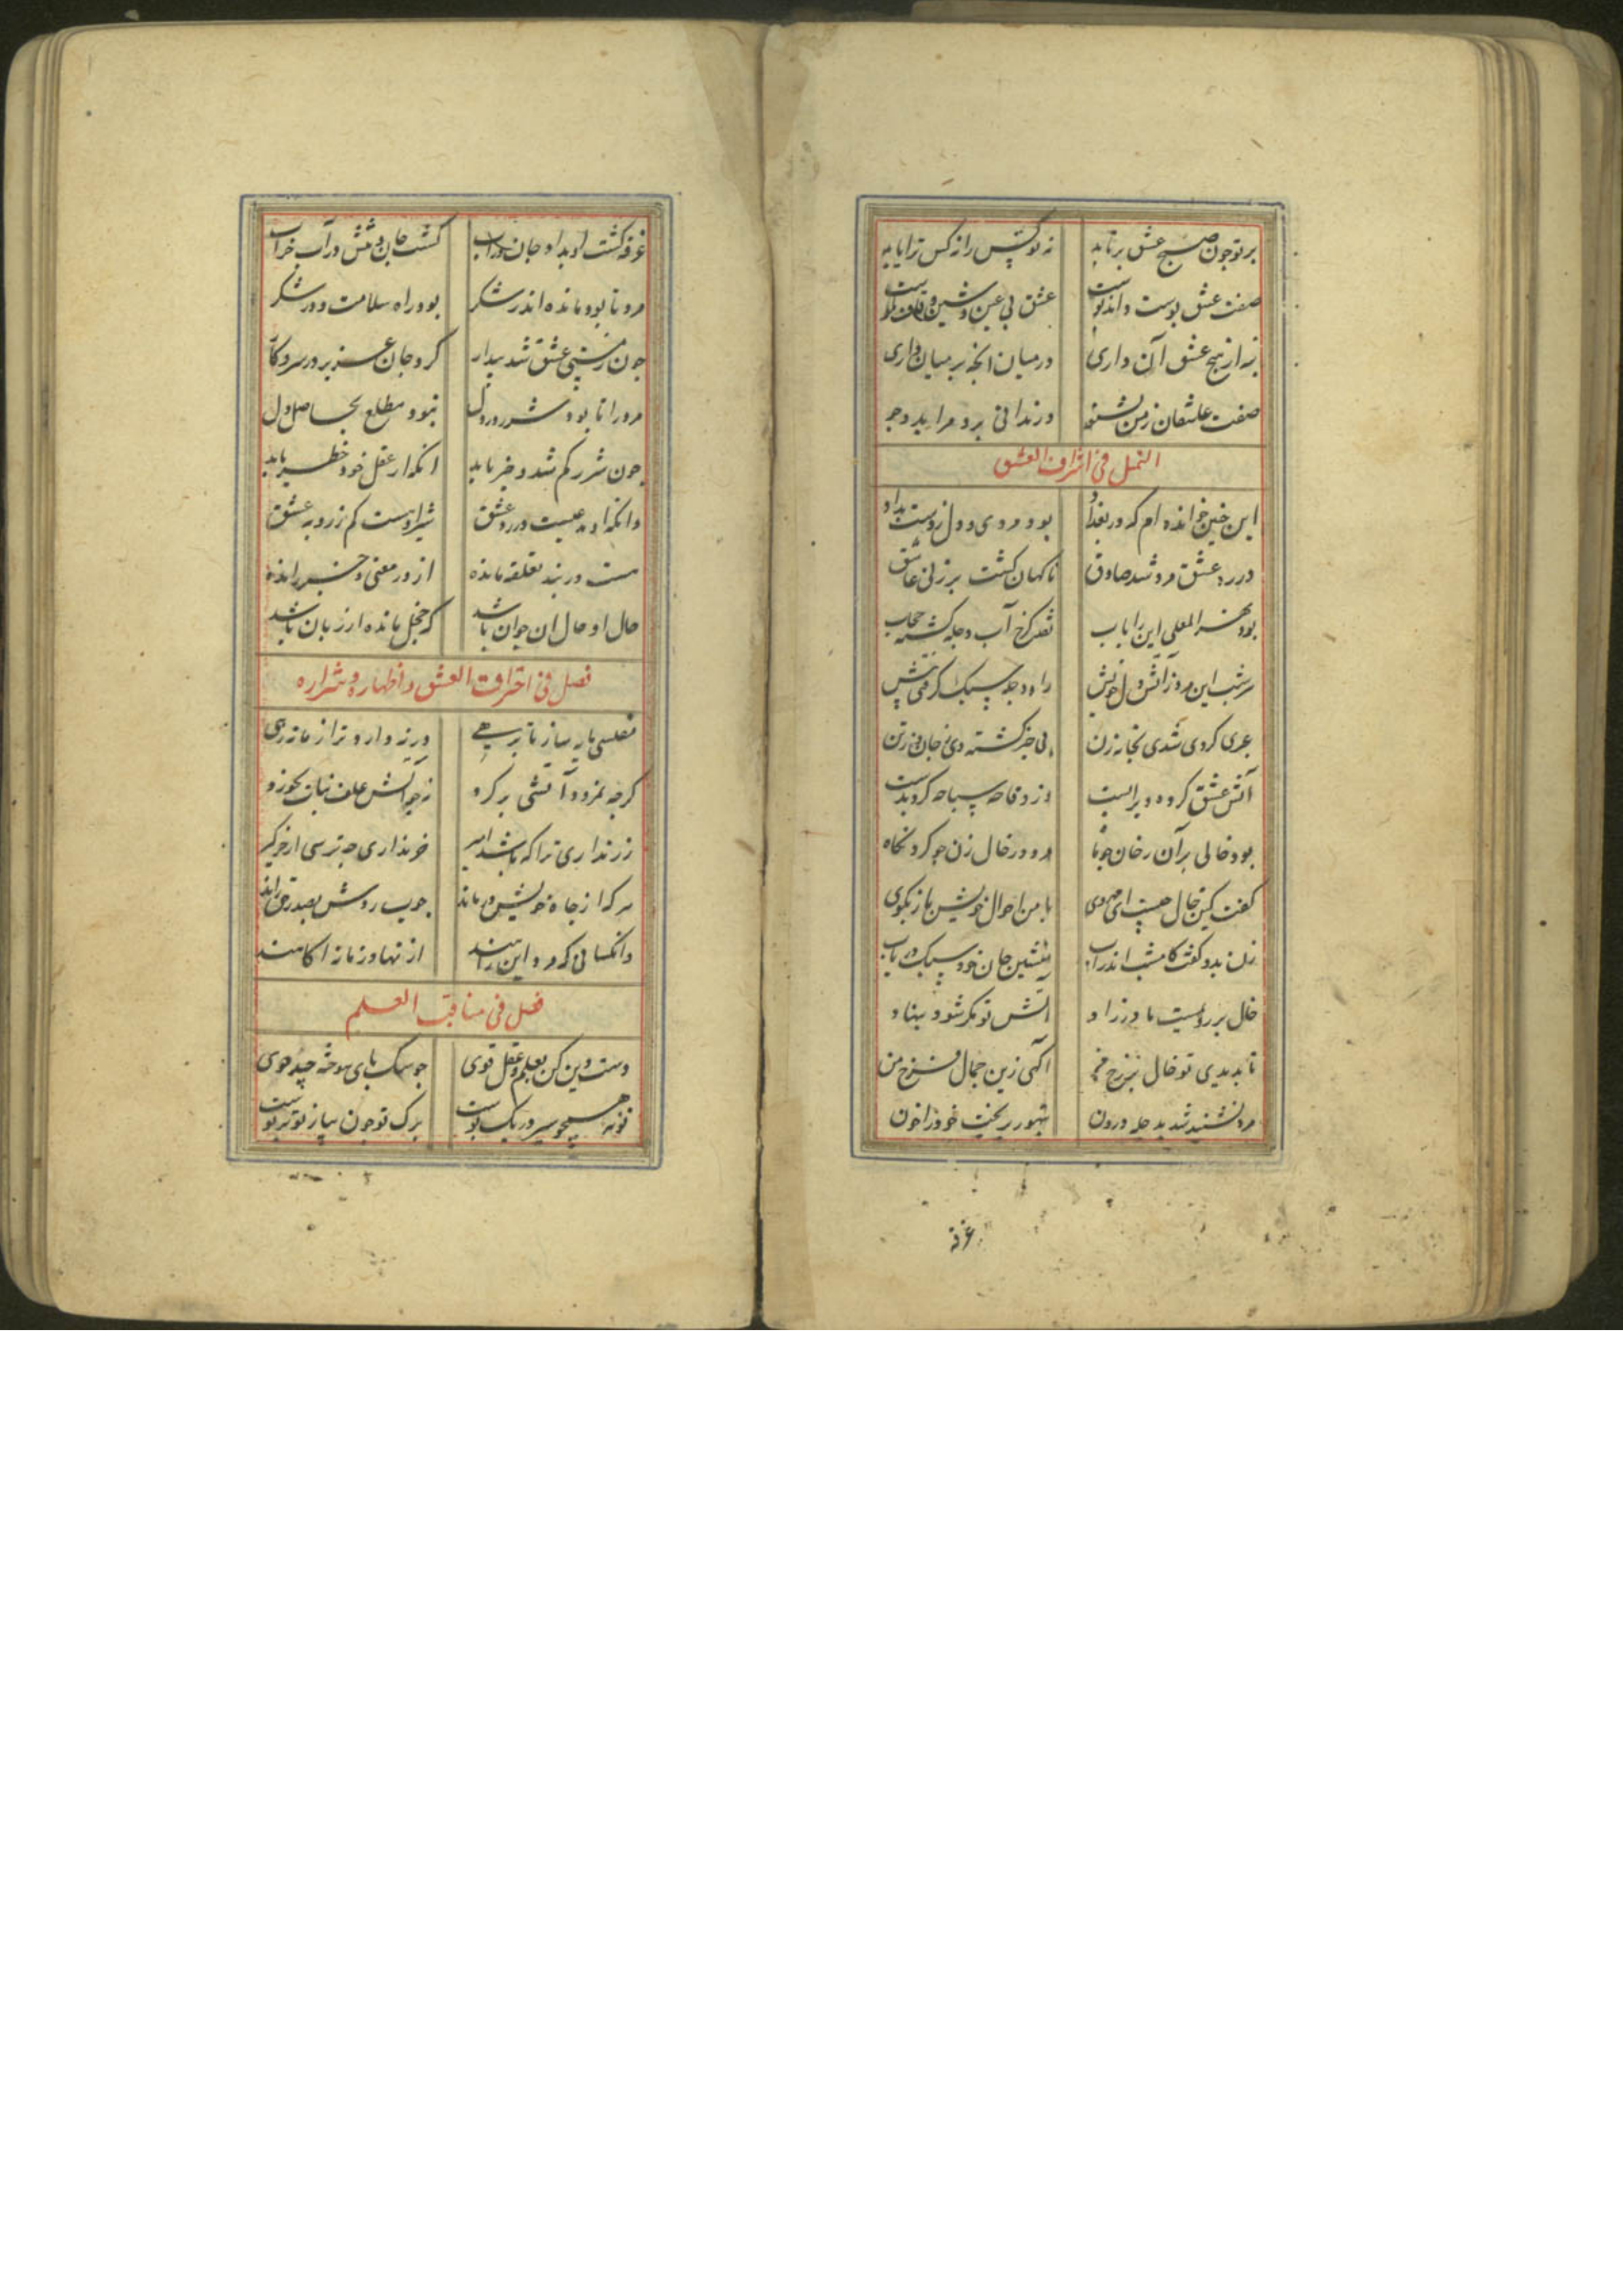 بر تو چون صبح عشق برتابد نه تو کس را نه کس ترا یابد
صفت عشق پوست واندوست عشق بی عین و شین و قاف نکوست
نه از پیج عشق آن داری در میان انجه بر میان داری
صفت عاشقان ز من بشنو ور ندانی برو مرا بدو جو
التمثل فی اشراف العشق
این چنین خوانده ام که در بغداد بود مردی و دل ز دست بداد
در ره عشق مرد شد صادق ناکهان کشت بر زنی عاشق
بود نهر المعلی این را باب نهر کرخ آب دجله کشته حجاب
هر شب این مرد ز آتش دل خویش راه دجله سبک کرفتی پیش
عبری کردی شدی بخانه زن بی خبر کشته وی ز جان و ز تن
آتش عشق کرده ویرا مست وز وقاحه سباحه کرده بدست
بود خالی بر آن رخان چو ماه مرد در خال زن چو کرد نکاه
کفت کین خال چیست ای مه روی با من احوال خویش باز بکوی
زن بدو کفت کامشب اندر آب منشین جان خود سبک دریاب
خال بر رویست مادر زاد آتش تو مکر شود بیداد
تا بدیدی تو خال بر رخ من آکهی زین جمال فرخ من
مرد نشنید شد بدجله درون بتهور بریخت خود را خون
غرقه
غرقه کشت او بداد جان در آب کشت جان و تنش در آب خراب
مرد تا بود مانده اندر شکر بود راه سلامت و در شکر
چون ز مستی عشق شد بیدار کرد جان عزیز در سر و کار
مرد را تا بود شرر در دل نبود مطلع بحاصل دل
چون شرر کم شد و خبر یابد انکه از عقل خود خطر یابد
وانکه او مدعیست در ره عشق شیر او هست کم ز روبه عشق
هست در بند تعلقه مانده از در معنی و خبر رانده
حال او حال ان جوان باشد که خجل مانده از زبان باشد
فصل فی احراقت العشق و اظهاره و شراره
مفلسی مایه ساز تا برهی ورنه دارو ترا ز ماند رهی
کرچه نمرود آتشی بر کرد زچه آتش علف نبات نخورد
زر نداری ترا که باشد امیر خر نداری چه ترسی از خر کیر
هر که از جاه خویش درماند چوب ردش بصدر حق راند
وانکسانی که مرد این راهند از نهاد زمانه اکاهند
فصل فی مناقب العلم
دست دین کن بعلم و عقل قوی چو سک پای سوخته چه دوی
نونه همچو سیر در یک پوست برک تو چون پیاز تو بر توست